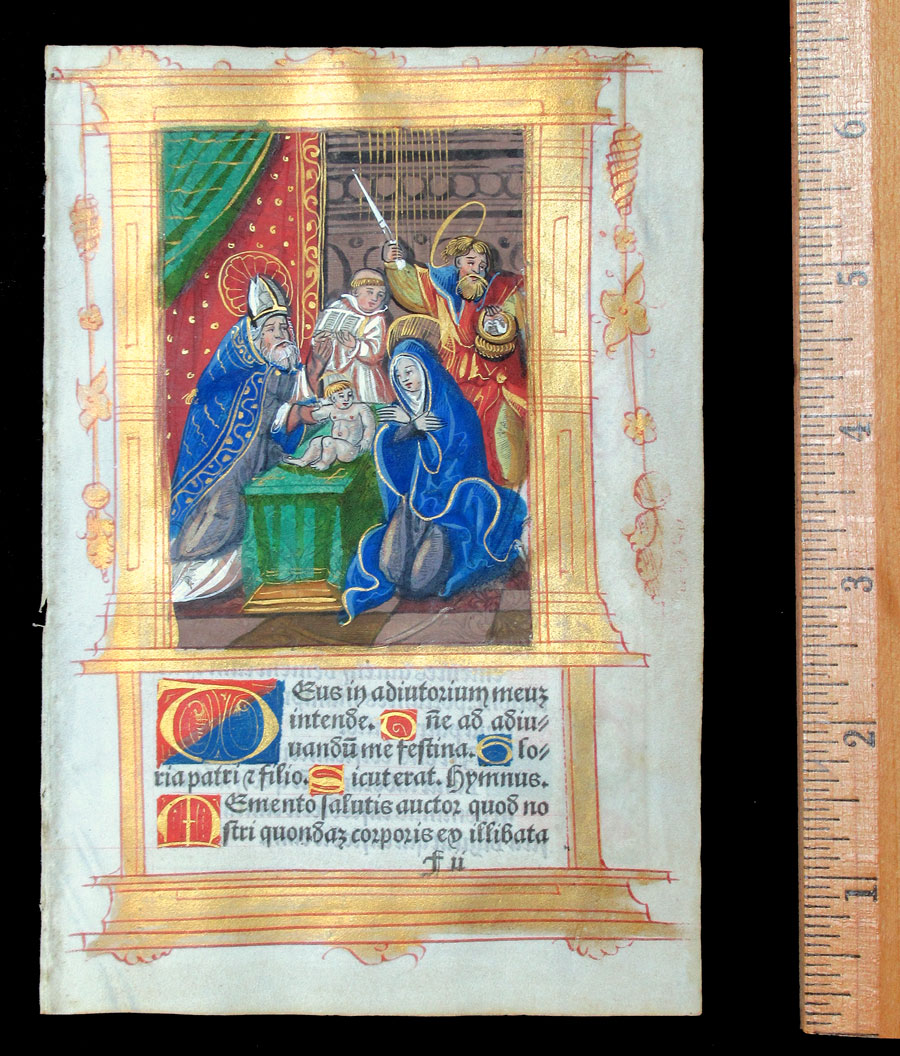 Deus in adiutorium meuʒ
intende. Dñe ad adiu-
uandū me festina. Glo-
ria patri ⁊ filio. Sicut erat. Hymnus.
Memento salutis auctor quod no
stri quondaʒ corporis ex illibata
f ii
6
5
4
3
2
1